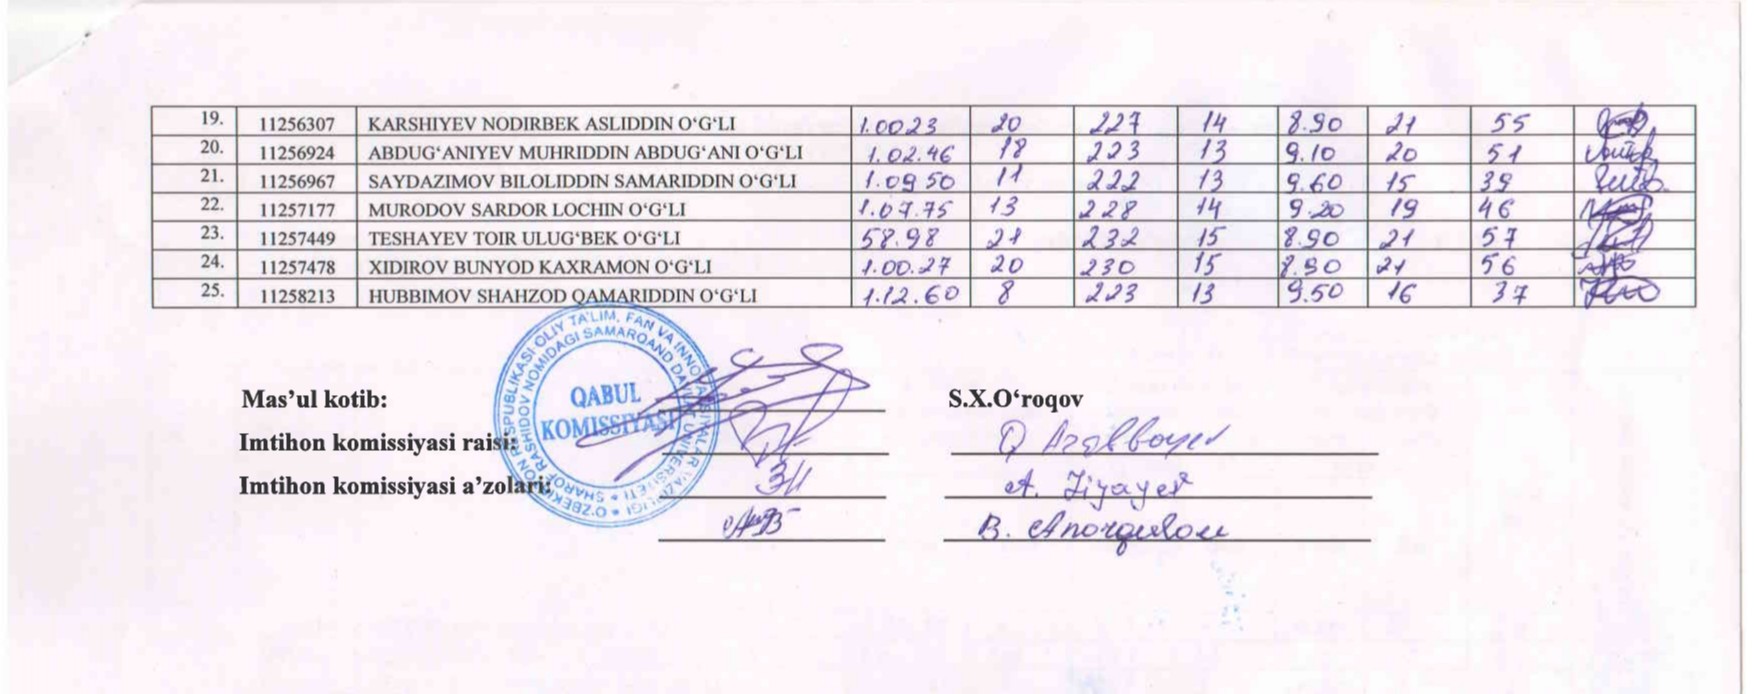 19. 11256307 KARSHIYEV NODIRBEK ASLIDDIN O‘G‘LI 1.0023 20 227 14 8.90 21 55
20. 11256924 ABDUG‘ANIYEV MUHRIDDIN ABDUG‘ANI O‘G‘LI 1.02.46 18 223 13 9.10 20 51
21. 11256967 SAYDAZIMOV BILOLIDDIN SAMARIDDIN O‘G‘LI 1.0950 11 222 13 9.60 15 39
22. 11257177 MURODOV SARDOR LOCHIN O‘G‘LI 1.07.75 13 228 14 9.20 19 46
23. 11257449 TESHAYEV TOIR ULUG‘BEK O‘G‘LI 58.98 21 232 15 8.90 21 57
24. 11257478 XIDIROV BUNYOD KAXRAMON O‘G‘LI 1.00.27 20 230 15 8.90 21 56
25. 11258213 HUBBIMOV SHAHZOD QAMARIDDIN O‘G‘LI 1.12.60 8 223 13 9.50 16 37
Mas’ul kotib: S.X.O‘roqov
Imtihon komissiyasi raisi: Q
Imtihon komissiyasi a’zolari: A. Jiyayev
B. Anorqulov
QABUL
KOMISSIYASI